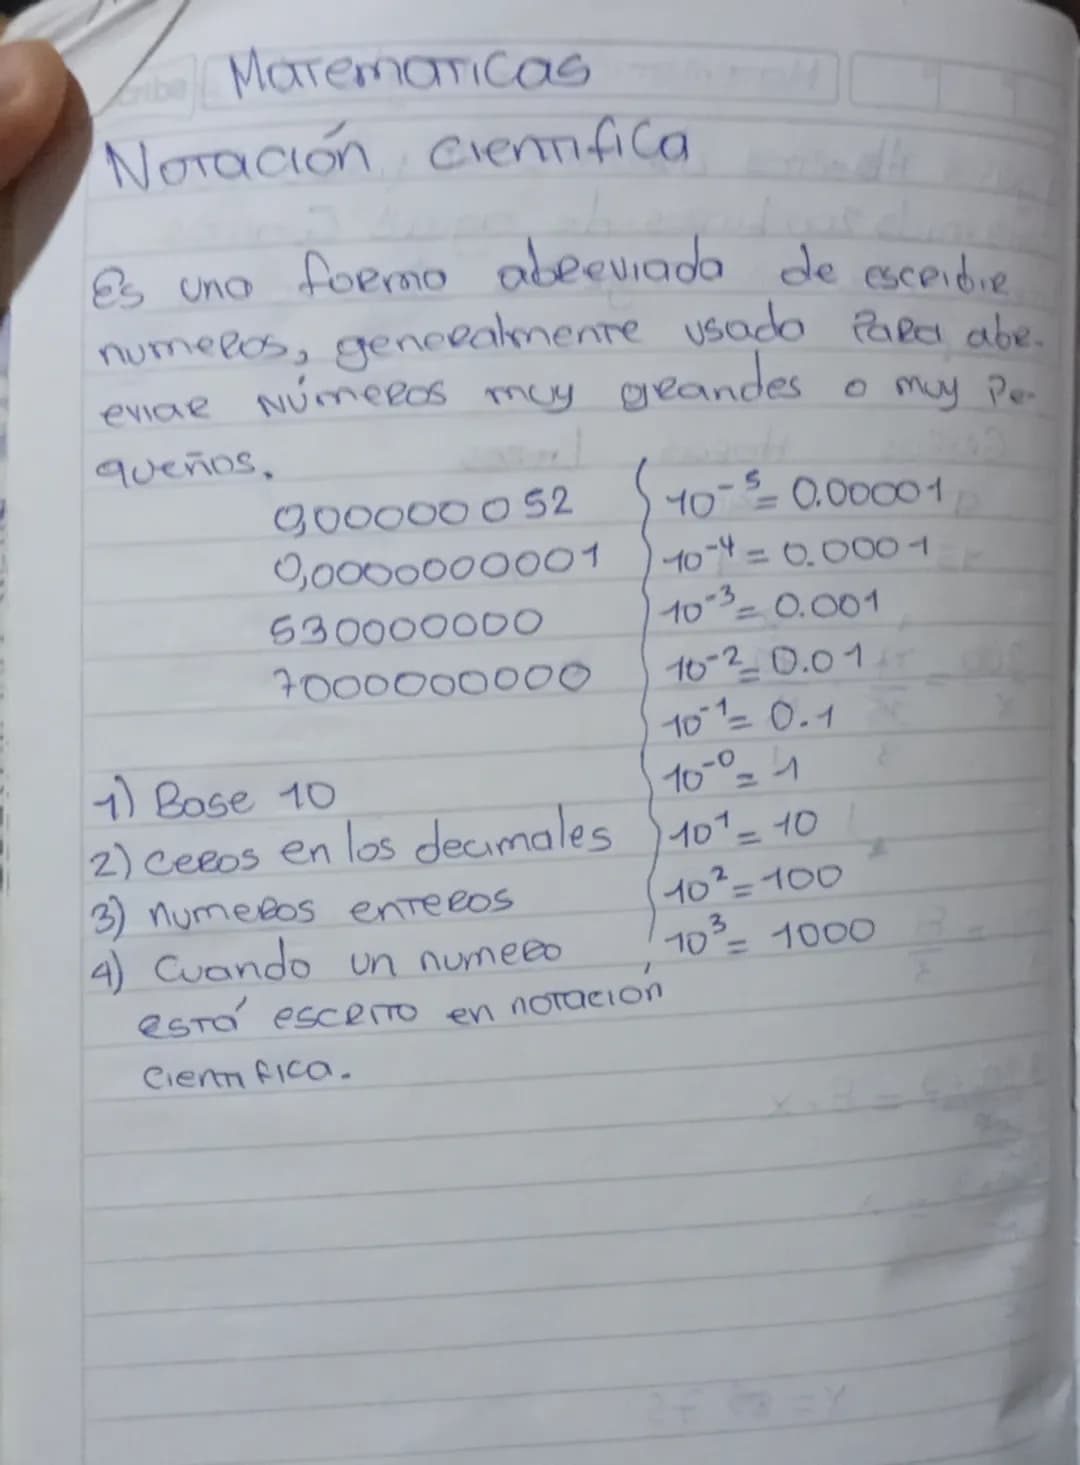 Matematicas
Notación cientifica
Es una forma abreviada de escribir
numeros, generalmente usada para abr-
eviar Números muy grandes o muy Pe-
queños.
0,00000052
0,0000000001
530000000
7000000000
10⁻⁵= 0.00001
10⁻⁴= 0.0001
10⁻³= 0.001
10⁻²= 0.01
10⁻¹= 0.1
10⁻⁰= 1
10¹= 10
10²= 100
10³= 1000
1) Base 10
2) ceros en los decimales
3) numeros enteros
4) Cuando un numero
está escrito en notación
Cientifica.